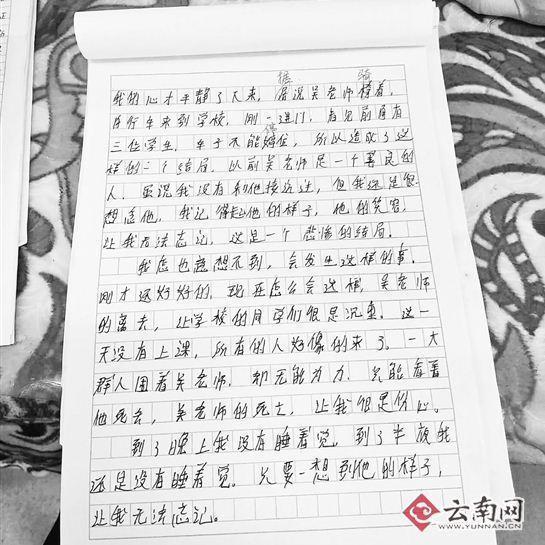 据 骑
我的心才平静了下来，居说吴老师椅着
自行车来到学校，刚一进门，看见前面有
停
三位学生，车子不能婷住，所以造成了这
样的一个结局，以前吴老师是一个善良的
人，虽说我没有和他接近过，但我还是很
想念他，我记得起他的样子，他的笑容，
让我无法忘记，这是一个悲惨的结局。
我怎也意想不到，会发生这样的事，
刚才还好好的，现在怎么会这样，吴老师
的离去，让学校的同学们很是沉重，这一
天没有上课，所有的人好像的来了，一大
群人围着吴老师，却无能为力，只能看着
他死去，吴老师的死亡，让我很是伤心。
到了晚上我没有睡着觉，到了半夜我
还是没有睡着觉。只要一想到他的样子，
让我无法忘记。
云南网
WWW.YUNNAN.CN